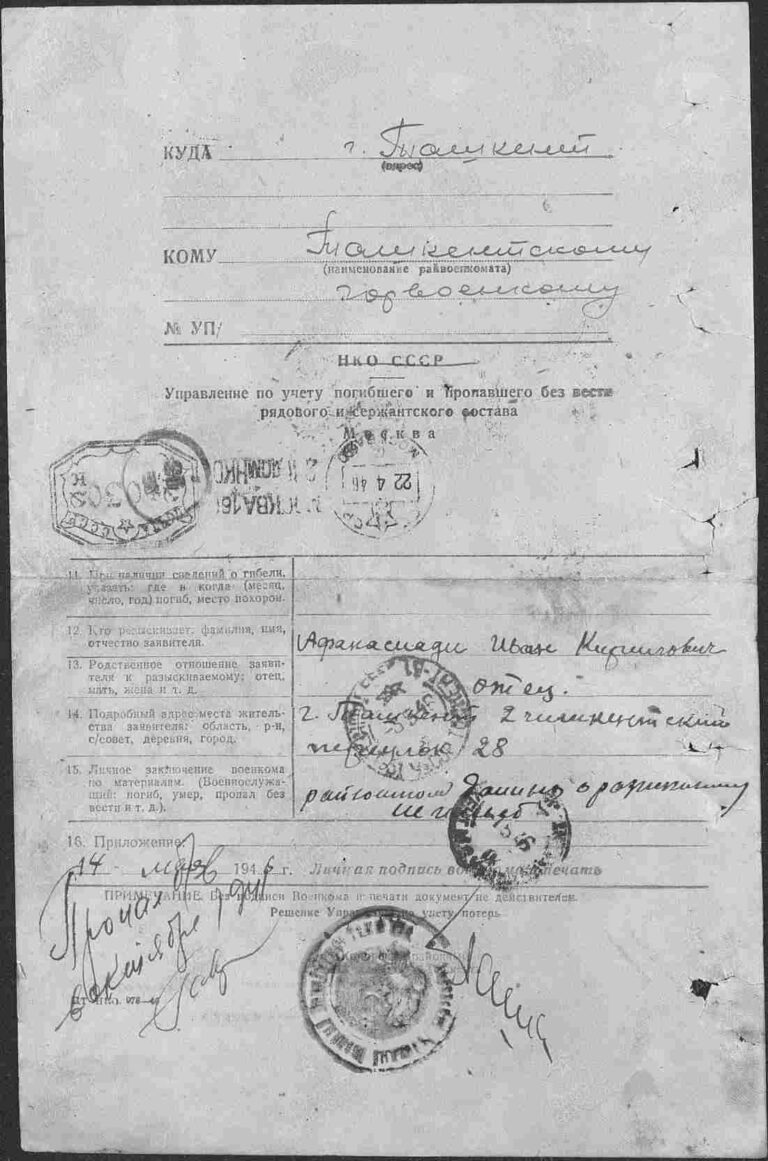 КУДА г. Ташкент
(адрес)
КОМУ Ташкентскому
(наименование райвоенкомата)
горвоенкому
№ УП/
НКО СССР
Управление по учету погибшего и пропавшего без вести
рядового и сержантского состава
Москва
22 4 46
11. При наличии сведений о гибели,
указать: где и когда (месяц,
число, год) погиб, место похорон.
12. Кто разыскивает: фамилия, имя,
отчество заявителя.
Афанасиади Иван Кириллович
13. Родственное отношение заяви-
теля к разыскиваемому: отец,
мать, жена и т. д.
отец.
14. Подробный адрес места житель-
ства заявителя: область, р-н,
с/совет, деревня, город.
г. Ташкент 2 чимкентский
переулок 28
15. Личное заключение военкома
по материалам. (Военнослужа-
щий: погиб, умер, пропал без
вести и т. д.).
16. Приложение:
14 1946 г. Личная подпись печать
ПРИМЕЧАНИЕ. Без подписи Военкома и печати документ не действителен.
Решение Управления по учету потерь
Пропал
в октябре